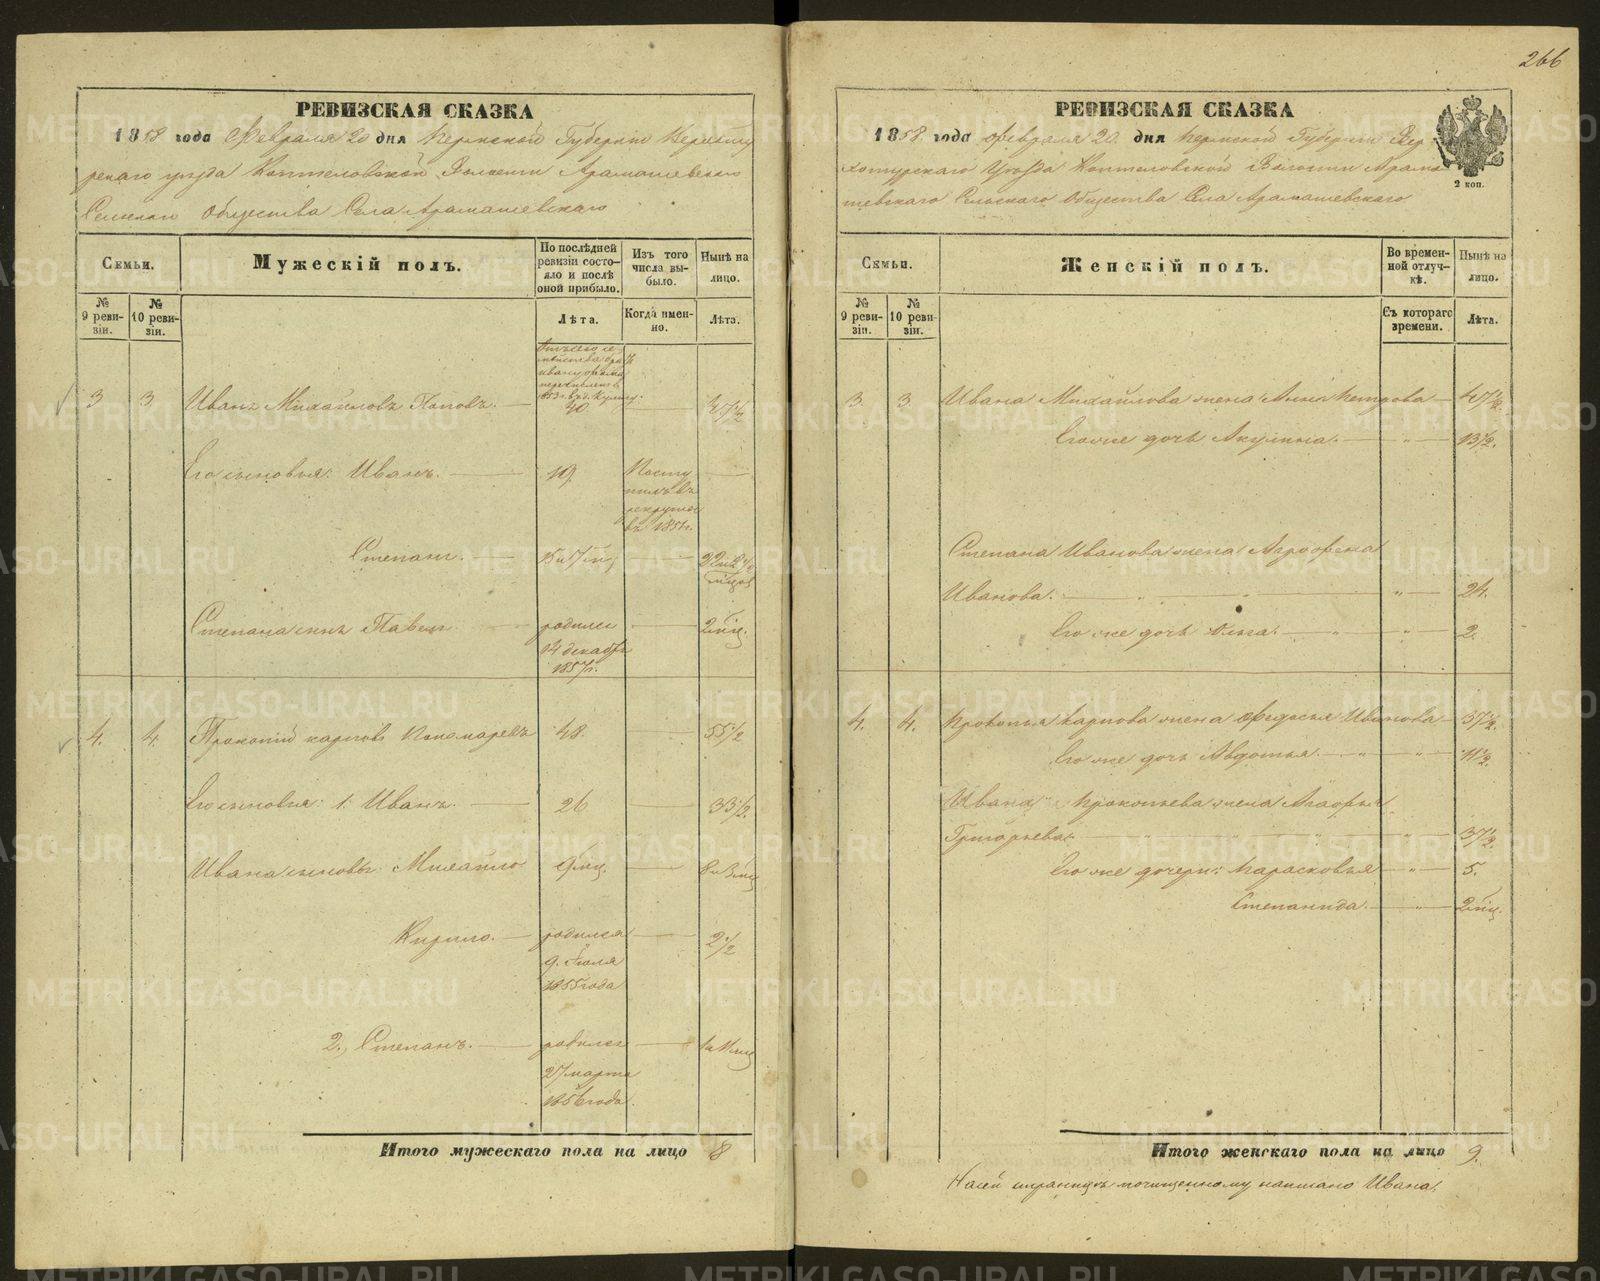 266
РЕВИЗСКАЯ СКАЗКА
1858 года Февраля 20 дня Пермской Губерніи Верхоту
рскаго уезда Коптеловской Волости Арамашевскаго
Сельскаго Общества Села Арамашевскаго
Семьи.
Мужескій полъ.
По послѣдней
ревизіи состо-
яло и послѣ
оной прибыло.
Изъ того
числа вы-
было.
Нынѣ на
лицо.
№
9 реви-
зіи.
№
10 реви-
зіи.
Лѣта.
Когда имен-
но.
Лѣта.
3 3 Иванъ Михайловъ Поповъ. 40. 47½
Его сыновья: Иванъ. 19. Посту
пилъ въ
рекруты
въ 1851 г.
Степанъ. 22
Степана сынъ Павелъ. родился 2 мѣс.
14 декабря
1857 г.
4. 4. Прокопій Карповъ Пономаревъ 48. 55½
Его сыновья: 1. Иванъ. 26 33½.
Ивана сыновья: Михайло 9 мѣс. 8 и 3 мѣс
Кирило. родился 2½
9. Іюля
1855 года
2. Степанъ. родился 1 и 11 мѣс
27 марта
1856 года.
Итого мужескаго пола на лицо 8
РЕВИЗСКАЯ СКАЗКА
1858 года Февраля 20 дня Пермской Губерніи Вер
хотурскаго Уезда Коптеловской Волости Арама
шевскаго Сельскаго Общества Села Арамашевскаго
2 коп.
Семьи.
Женскій полъ.
Во времен-
ной отлуч-
кѣ.
Нынѣ на
лицо.
№
9 реви-
зіи.
№
10 реви-
зіи.
Съ котораго
времени.
Лѣта.
3. 3. Ивана Михайлова жена Анна Петрова 47½.
Его же дочь Акулина. 13½.
Степана Иванова жена Агрофена
Иванова. 24.
Его же дочь 2.
4. 4. Прокопья Карпова жена Федосья Иванова 57½.
Его же дочь Авдотья. 11½.
Ивана Прокопьева жена
Григорьева. 37½.
Его же дочери: Парасковья 5.
Степанида. 2 мѣс.
Итого женскаго пола на лицо 9.
На сей страницѣ по чищенному написано Ивана.
METRIKI.GASO-URAL.RU